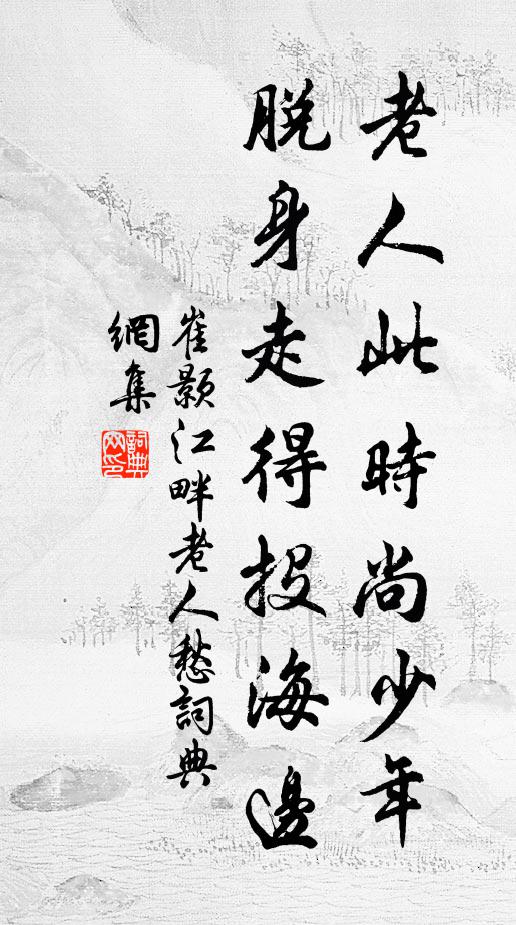 老人此時尚少年
脫身走得投海邊
崔顥江畔老人愁詞典
網集
詞典網印